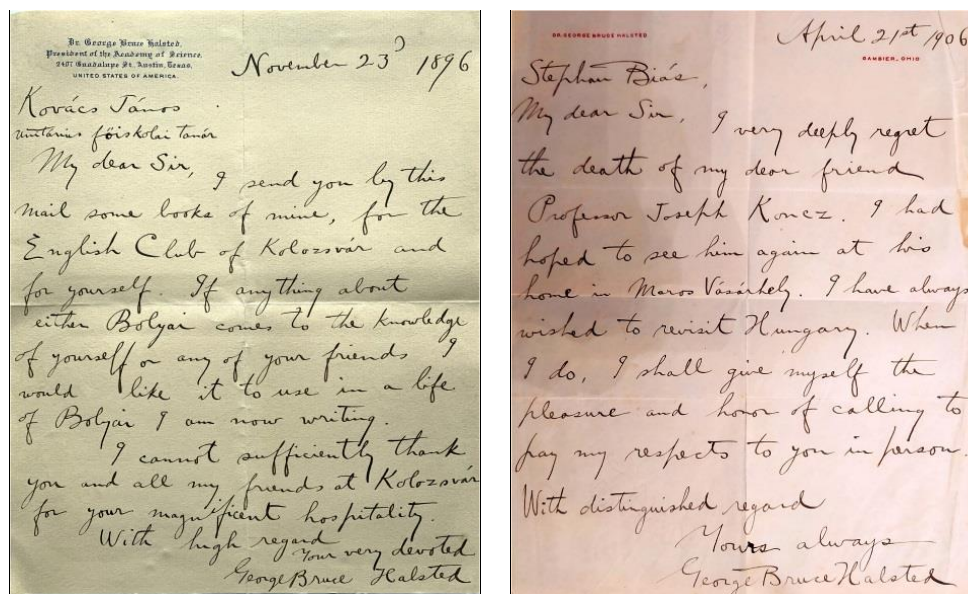 Dr. George Bruce Halsted,
President of the Academy of Science,
2407 Guadalupe St., Austin, Texas,
UNITED STATES OF AMERICA.
November 23 1896
Kovács János
unitárius főiskolai tanár
My dear Sir,
I send you by this
mail some books of mine, for the
English Club of Kolozsvár and
for yourself. If anything about
either Bolyai comes to the knowledge
of yourself or any of your friends I
would like it to use in a life
of Bolyai I am now writing.
I cannot sufficiently thank
you and all my friends at Kolozsvár
for your magnificent hospitality.
With high regard
Your very devoted
George Bruce Halsted
DR. GEORGE BRUCE HALSTED
April 21st 1906
GAMBIER, OHIO
Stephan Biás,
My dear Sir,
I very deeply regret
the death of my dear friend
Professor Joseph Koncz. I had
hoped to see him again at his
home in Maros Vásárhely. I have always
wished to revisit Hungary. When
I do, I shall give myself the
pleasure and honor of calling to
pay my respects to you in person.
With distinguished regard
Yours always
George Bruce Halsted